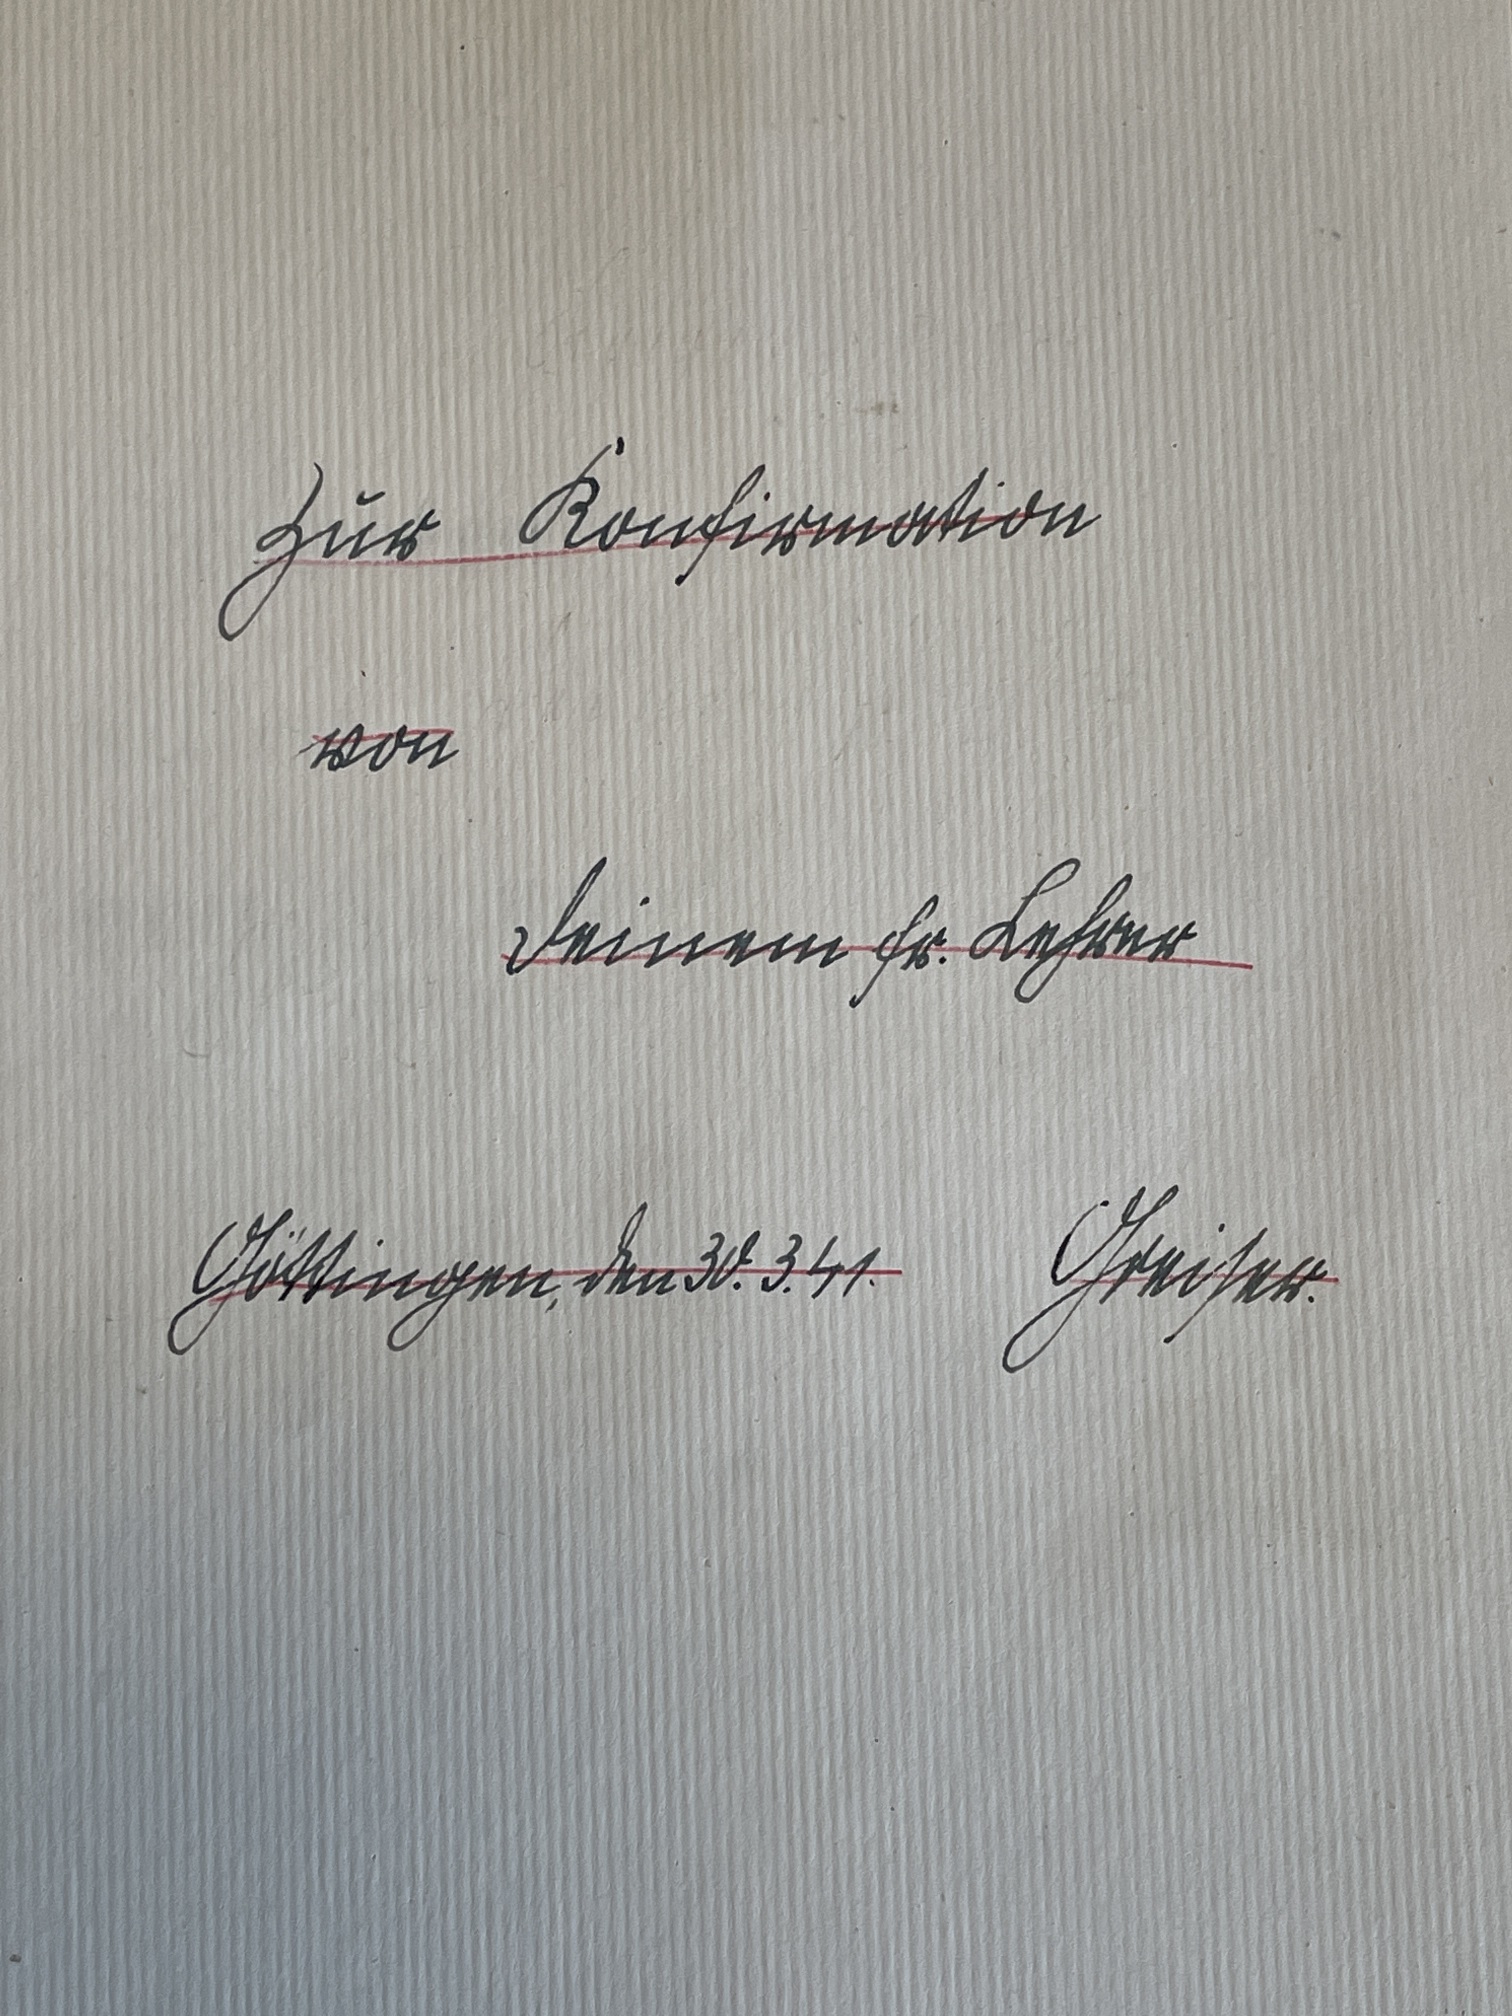 Zur Konfirmation
von
Deinem fr. Lehrer
Göttingen, den 30. 3. 41. Greiser.